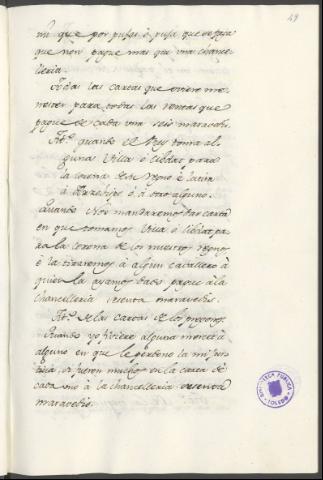 49
ni que por pusa, ó pusa que se faga
que non pague mas que una chance-
lleria.
Todas las cartas que oviere me-
nester para todas las rentas que
pague de cada una seis maravedis.
Tit.º quando el Rey toma al-
guna Villa ó Cibdat para
la corona de su Reyno é la tira
á Arzobispo, ó á otro alguno.
Quando Nos mandaremos dar carta
en que tomamos Villa ó Cibdat pa-
ra la corona de los nuestros Reynos
é la tiraremos á algun cavallero á
quien la ayamos dado pague á la
chancelleria sesenta maravedis.
Tit.º de las cartas de los
Quando yo ficiere alguna merced á
alguno en que le perdono la mi jus-
ticia, si fueren muchos en la carta de
cada uno á la chancelleria sesenta
maravedis.
BIBLIOTECA PÚBLICA
TOLEDO